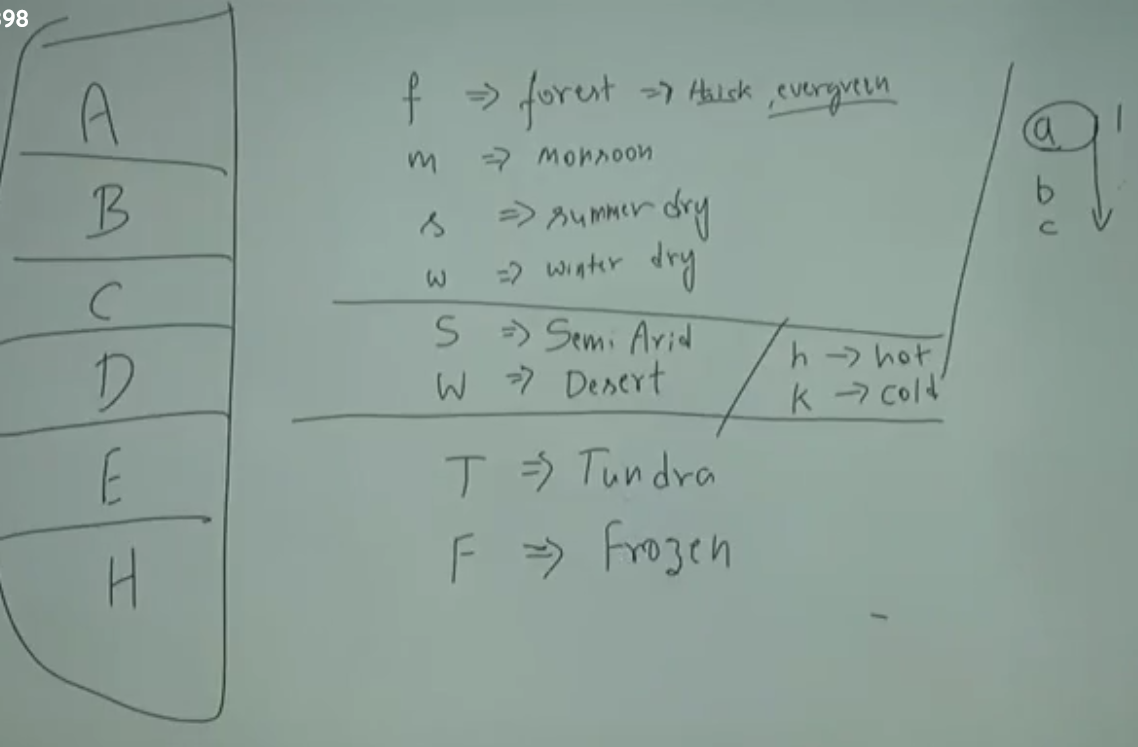 398
A
B
C
D
E
H
f => forest => thick, evergreen
m => monsoon
s => summer dry
w => winter dry
S => Semi Arid
W => Desert
h -> hot
k -> cold
T => Tundra
F => Frozen
a
b
c